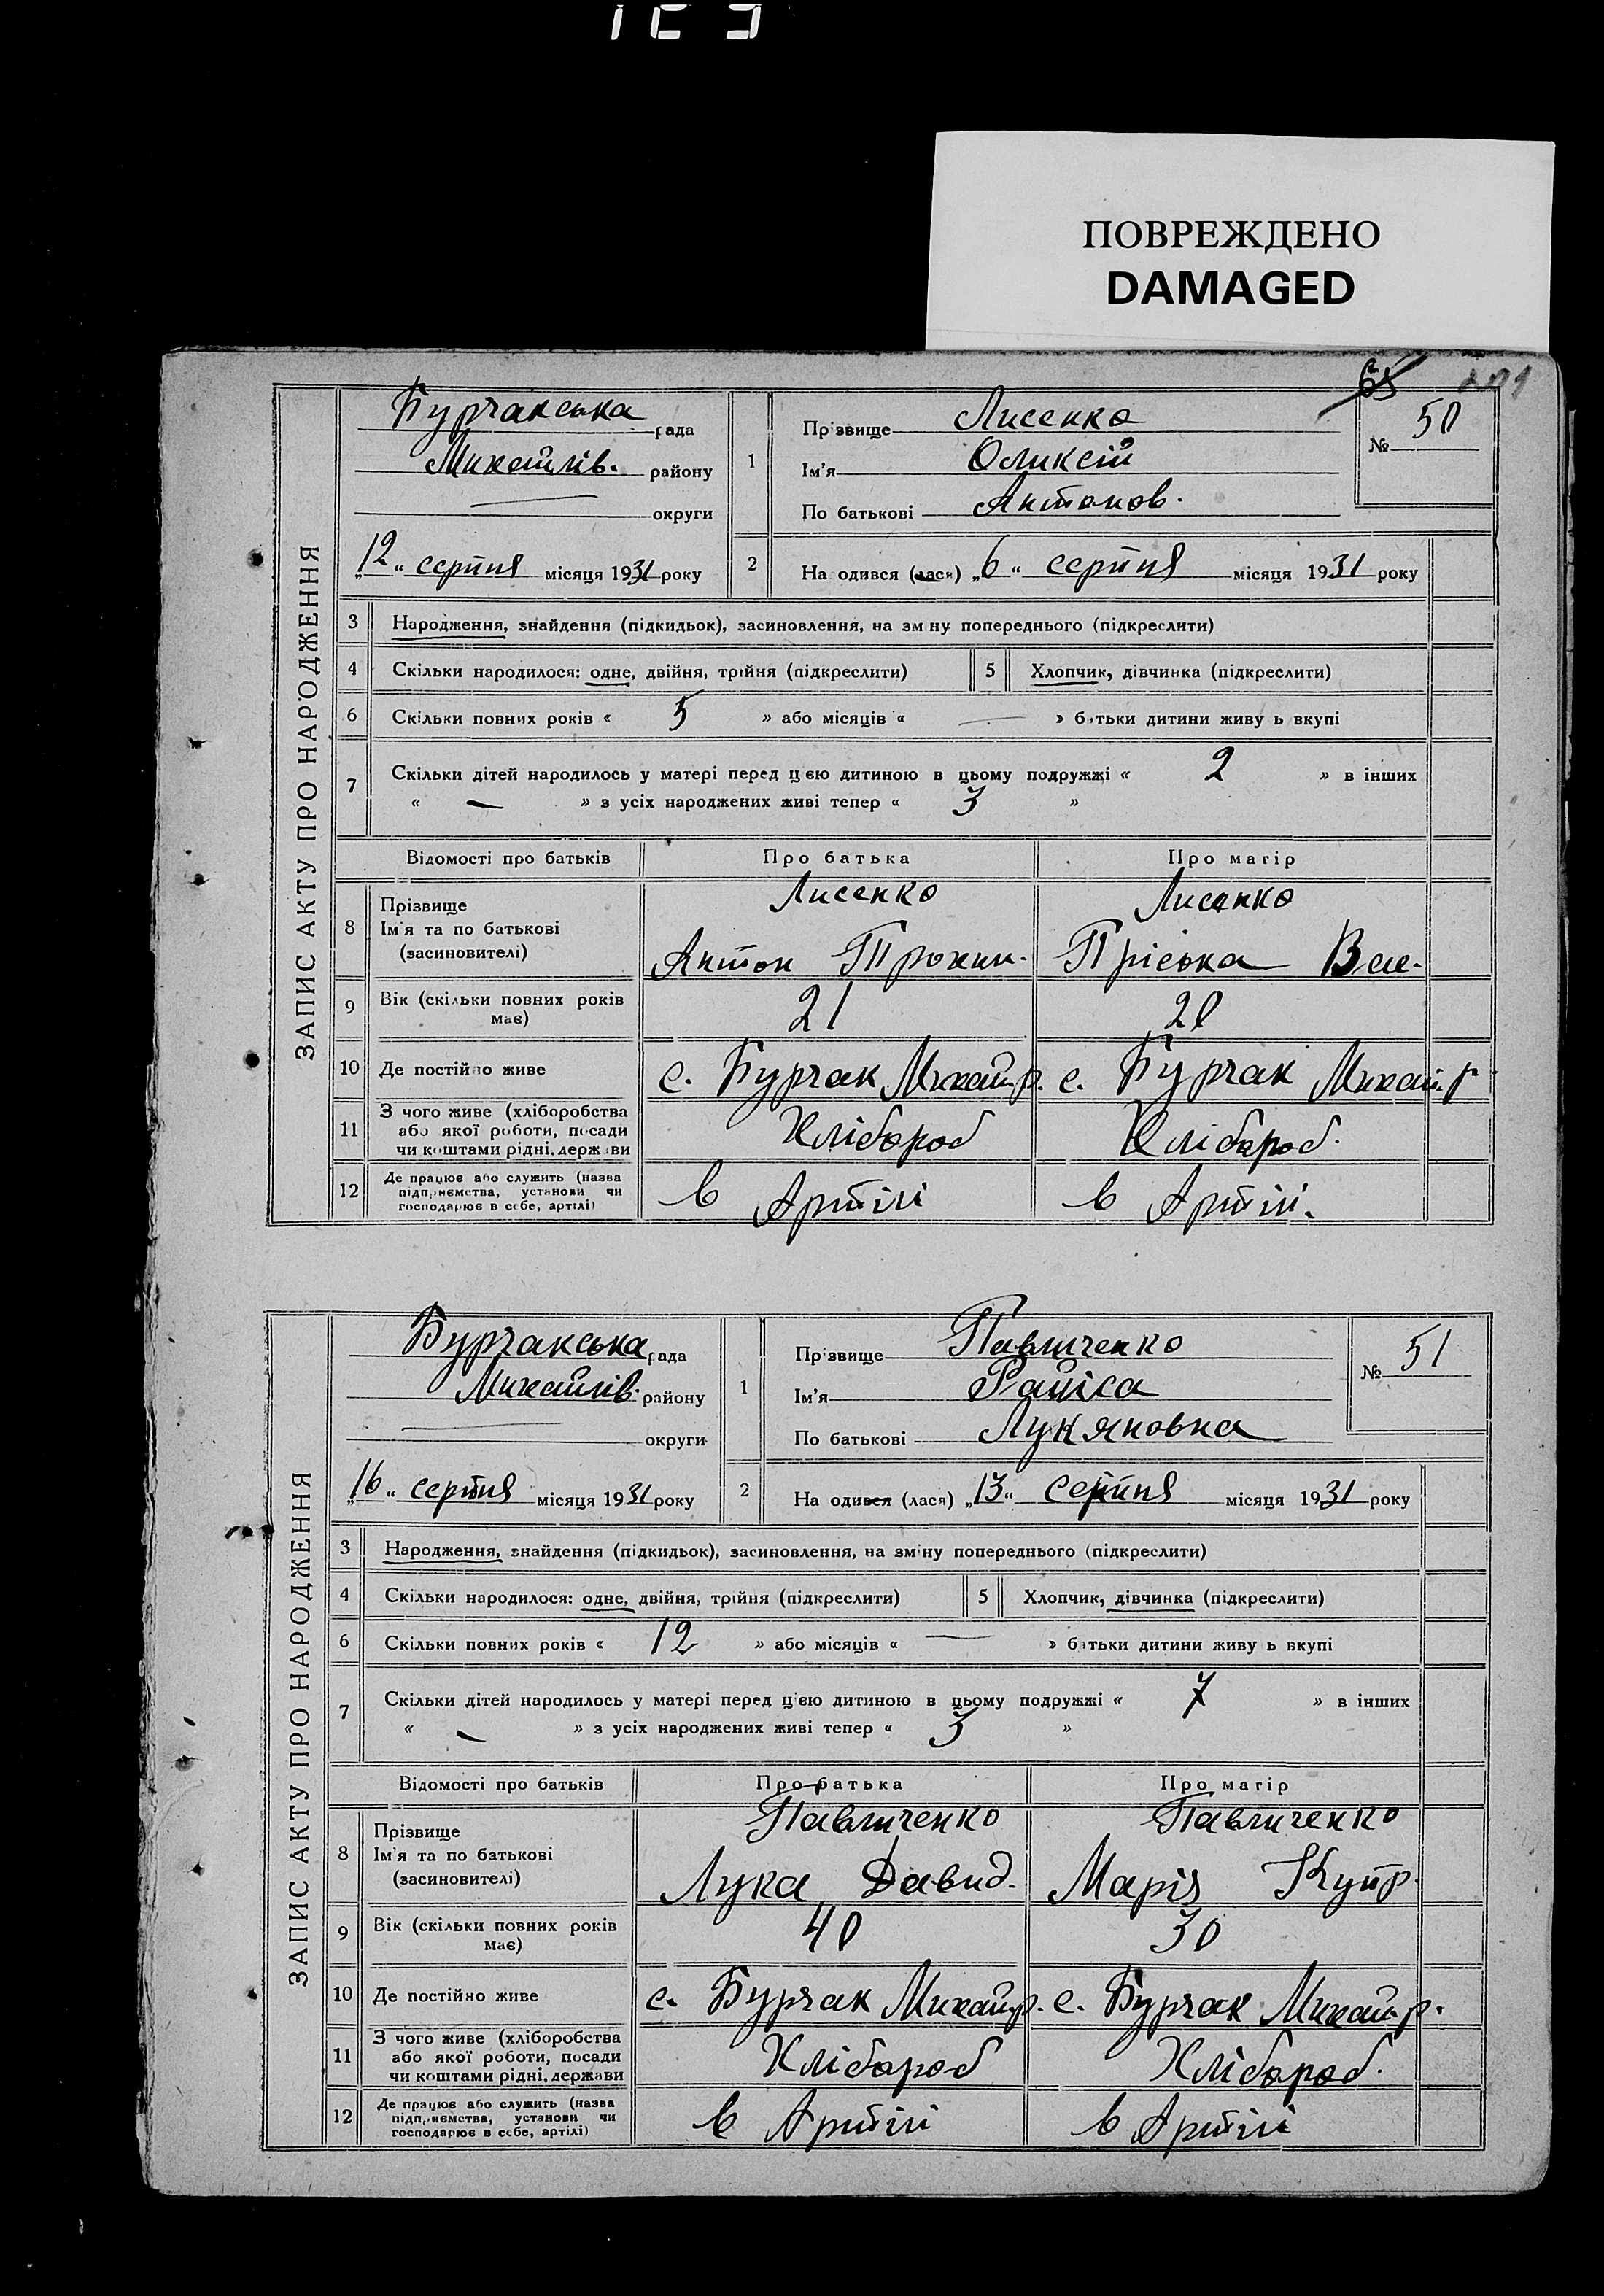 ПОВРЕЖДЕНО
DAMAGED
65
ЗАПИС АКТУ ПРО НАРОДЖЕННЯ
Бурчакська рада
Михайлів. району
округи
„12“ серпня місяця 1931 року
1
Прізвище Лисенко
Ім'я Оликсій
По батькові Антонов.
№ 50
2
На одився (лася) „6“ серпня місяця 1931 року
3 Народження, знайдення (підкидьок), засиновлення, на зміну попереднього (підкреслити)
4 Скільки народилося: одне, двійня, трійня (підкреслити) 5 Хлопчик, дівчинка (підкреслити)
6 Скільки повних років « 5 » або місяців « — » батьки дитини живу ь вкупі
7 Скільки дітей народилось у матері перед цією дитиною в цьому подружжі « 2 » в інших
« — » з усіх народжених живі тепер « 3 »
Відомості про батьків Про батька Про матір
8 Прізвище Лисенко Лисенко
Ім'я та по батькові
(засиновителі) Антон Трохим. Пріська Вас.
9 Вік (скільки повних років
має) 21 20
10 Де постійно живе с. Бурчак Михай.р. с. Бурчак Михай.р
11 З чого живе (хліборобства
або якої роботи, посади
чи коштами рідні, держави Хлібороб Хлібороб.
12 Де працює або служить (назва
підприємства, установи чи
господарює в себе, артілі) в Артілі в Артілі.
ЗАПИС АКТУ ПРО НАРОДЖЕННЯ
Бурчакська рада
Михайлів. району
округи
„16“ серпня місяця 1931 року
1
Прізвище Павличенко
Ім'я Раїса
По батькові Лукяновна
№ 51
2
На одився (лася) „13“ серпня місяця 1931 року
3 Народження, знайдення (підкидьок), засиновлення, на зміну попереднього (підкреслити)
4 Скільки народилося: одне, двійня, трійня (підкреслити) 5 Хлопчик, дівчинка (підкреслити)
6 Скільки повних років « 12 » або місяців « — » батьки дитини живу ь вкупі
7 Скільки дітей народилось у матері перед цією дитиною в цьому подружжі « 7 » в інших
« — » з усіх народжених живі тепер « 3 »
Відомості про батьків Про батька Про матір
8 Прізвище Павличенко Павличенко
Ім'я та по батькові
(засиновителі) Лука Давид. Марія Купр.
9 Вік (скільки повних років
має) 40 30
10 Де постійно живе с. Бурчак Михай.р. с. Бурчак Михай.р.
11 З чого живе (хліборобства
або якої роботи, посади
чи коштами рідні, держави Хлібороб Хлібороб.
12 Де працює або служить (назва
підприємства, установи чи
господарює в себе, артілі) в Артілі в Артілі